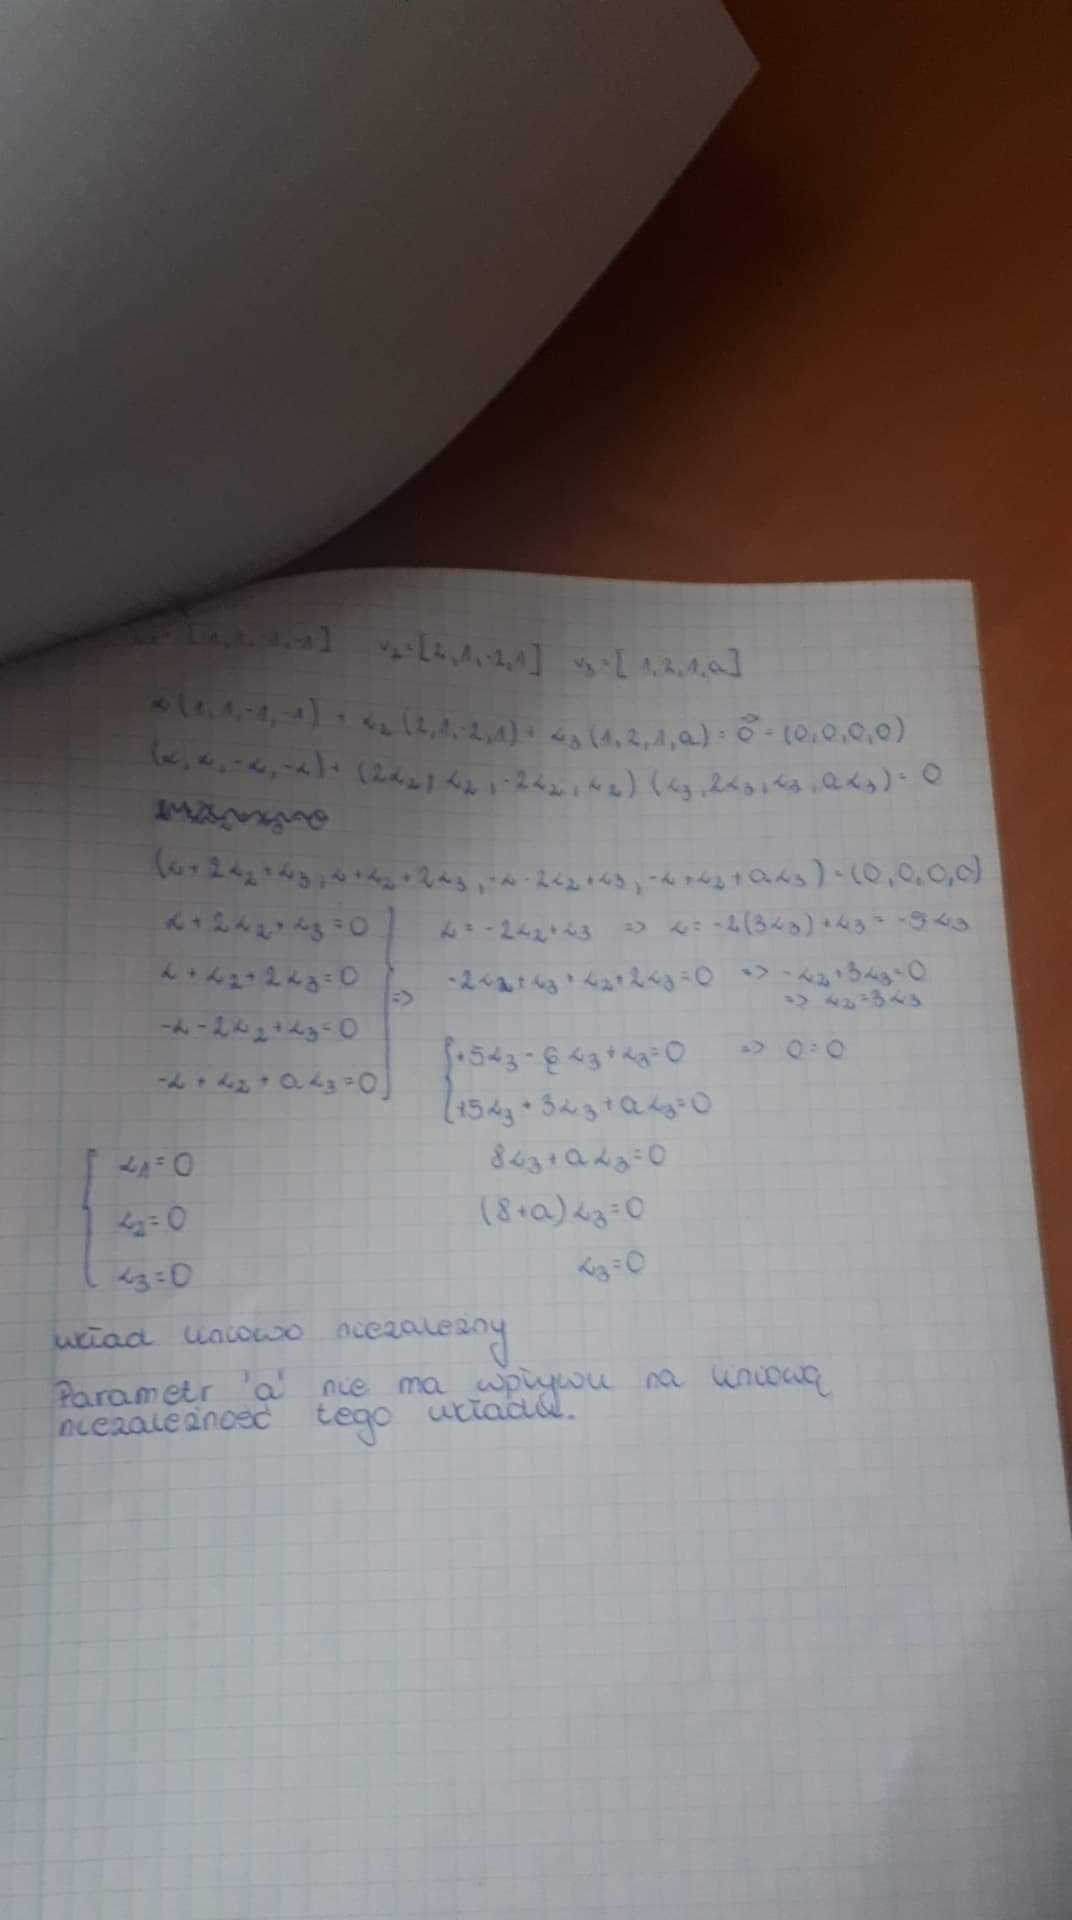 v₁=[1,1,-1,-1] v₂=[2,1,-2,1] v₃=[1,2,1,a]
α(1,1,-1,-1) + α₂(2,1,-2,1) + α₃(1,2,1,a) = 0⃗ = (0,0,0,0)
(α,α,-α,-α) + (2α₂,α₂,-2α₂,α₂) (α₃,2α₃,α₃,aα₃) = 0
(α+2α₂+α₃,α+α₂+2α₃,-α-2α₂+α₃,-α+α₂+aα₃) = (0,0,0,0)
α+2α₂+α₃=0 α=-2α₂+α₃ => α=-2(3α₃)+α₃=-5α₃
α+α₂+2α₃=0 => -2α₂+α₃+α₂+2α₃=0 => -α₂+3α₃=0
=> α₂=3α₃
-α-2α₂+α₃=0 +5α₃-6α₃+α₃=0 => 0=0
-α+α₂+aα₃=0 +5α₃+3α₃+aα₃=0
α₁=0 8α₃+aα₃=0
α₂=0 (8+a)α₃=0
α₃=0 α₃=0
układ liniowo niezależny
Parametr 'a' nie ma wpływu na liniową
niezależność tego układu.